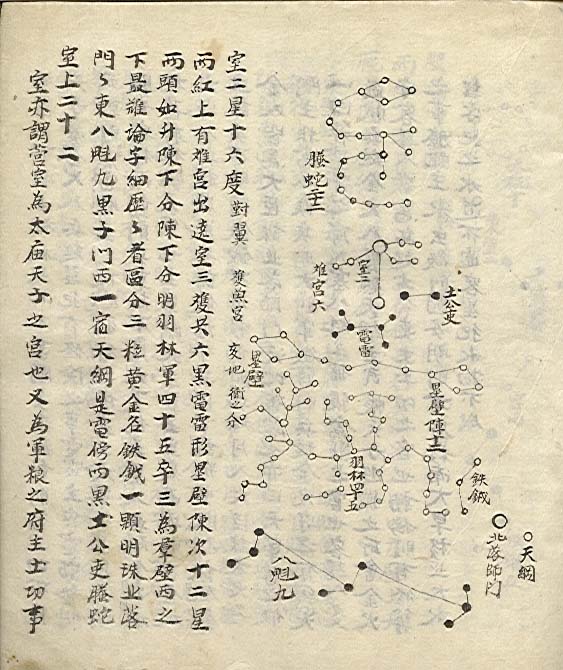 螣蛇二十二
室二
难宮六
土公吏
壘壁陣十二
羽林四十五
鉄鉞
天綱
北落師門
八魁九
室二星十六度 對翼 雙魚宮 亥地 衛之分
两紅上有难宮出遠室三雙只六黑雷雷形壘壁陳次十二星
两頭如升陳下分陳下分明羽林軍四十五卒三為羣壁西之
下最难論字細歴〻者區分三粒黄金名鉄鉞一顆明珠北落
門〻東八魁九黒子門西一宿天綱是電傍两黒土公吏螣蛇
室上二十二
室亦謂营室為太庙天子之宮也又為軍粮之府主土功事